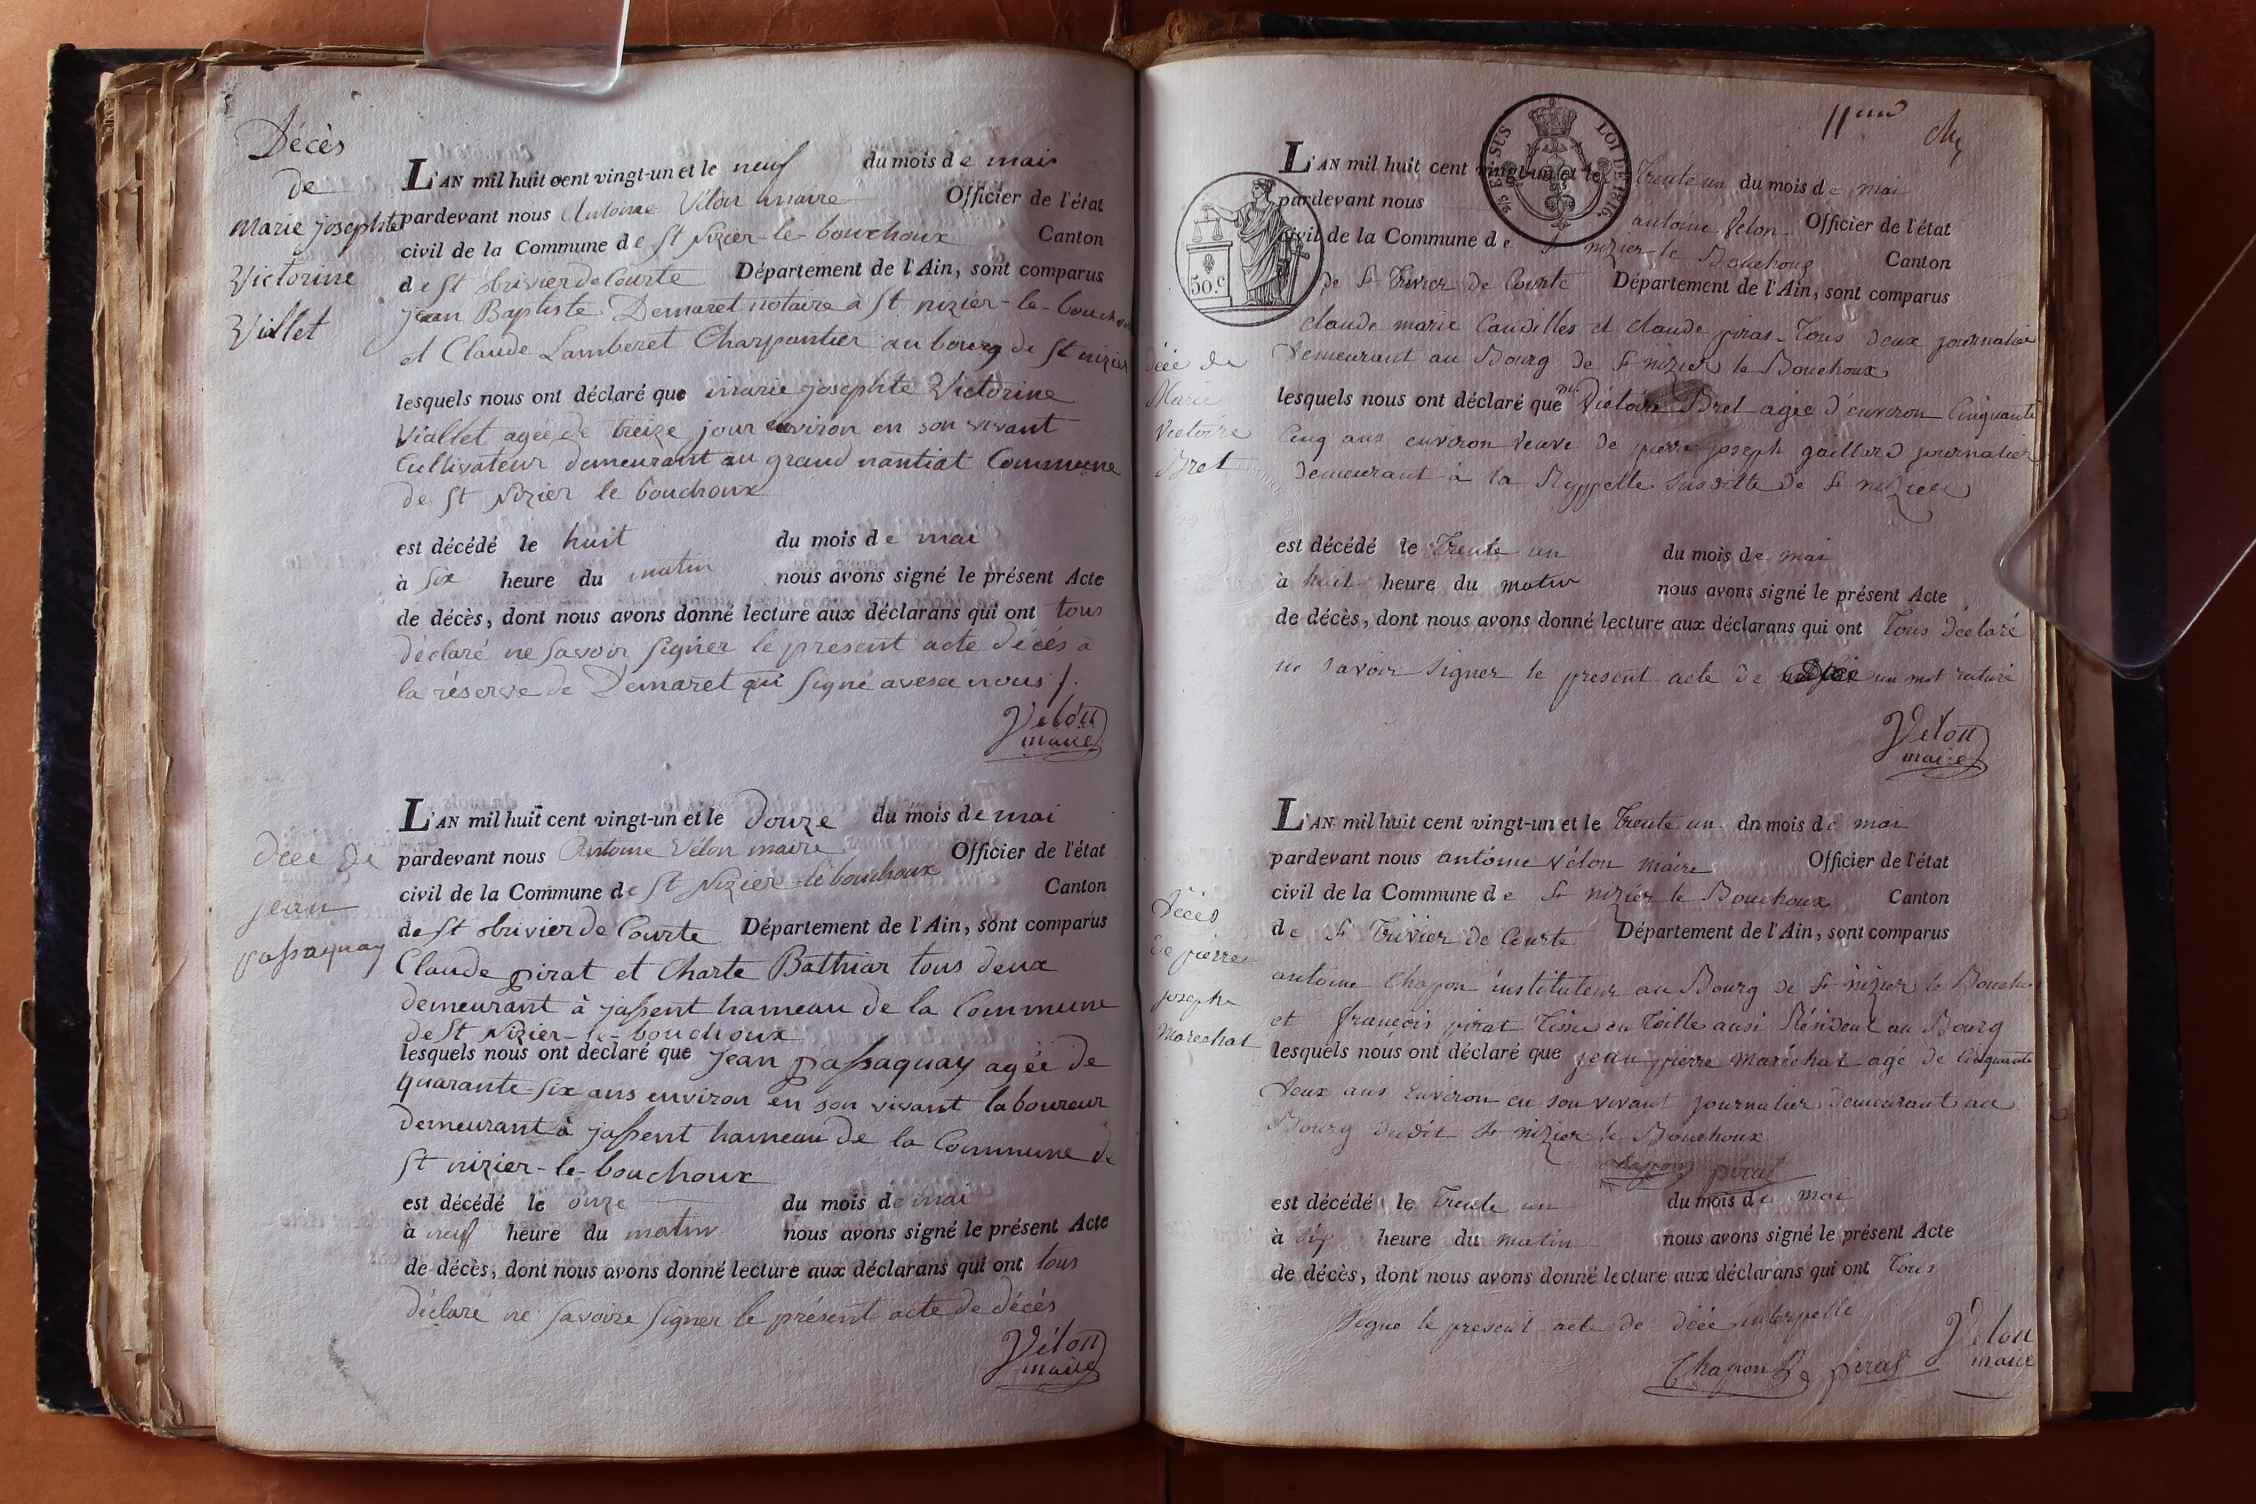 Décès
de
Marie josephte
Victorine
Viallet
L'AN mil huit cent vingt-un et le neuf du mois de mai
pardevant nous Antoine Vélon maire Officier de l'état
civil de la Commune de St Nizier-le-bouchoux Canton
de St trivier de Courte Département de l'Ain, sont comparus
jean Baptiste Demaret notaire à St nizier-le-bouchoux
et Claude Lamberet Charpantier au bourg de St nizier
lesquels nous ont déclaré que marie josephte Victorine
Viallet agée de treize jour environ en son vivant
Cultivateur demeurant au grand nantiat Commune
de St Nizier le bouchoux
est décédé le huit du mois de mai
à six heure du matin nous avons signé le présent Acte
de décès, dont nous avons donné lecture aux déclarans qui ont tous
déclaré ne savoir signer le present acte décés a
la réserve de Demaret qui signé avesce nous
Vélon
maire
décé de
jean
passaquay
L'AN mil huit cent vingt-un et le douze du mois de mai
pardevant nous Antoine Vélon maire Officier de l'état
civil de la Commune de St Nizier-le bouchoux Canton
de St trivier de Courte Département de l'Ain, sont comparus
Claude pirat et Charle Bathiar tous deux
demeurant à jassent hameau de la Commune
de St Nizier-le-bouchoux
lesquels nous ont déclaré que jean passaquay agée de
quarante-six ans environ en son vivant laboureur
demeurant à jassent hameau de la Commune de
St nizier-le-bouchoux
est décédé le onze du mois de mai
à neuf heure du matin nous avons signé le présent Acte
de décès, dont nous avons donné lecture aux déclarans qui ont tous
déclaré ne savoire signer le présent acte de décés
Vélon
maire
ET SUS LOI DE 1816.
50.c
L'AN mil huit cent vingt-un et le Trente un du mois de mai
pardevant nous antoine Velon Officier de l'état
civil de la Commune de St nizier-le Bouchoux Canton
de St Trivier de Courte Département de l'Ain, sont comparus
claude marie Caudilles et claude piras Tous deux journalier
demeurant au Bourg de St nizier le Bouchoux
décé de
Marie
Victoire
Bret
lesquels nous ont déclaré que mie Victoire Bret agée d'environ Cinquante
Cinq ans environ veuve de pierre joseph gaillard journalier
demeurant à la Ruppelle susditte de St nizier
est décédé le Trente un du mois de mai
à huit heure du matin nous avons signé le présent Acte
de décès, dont nous avons donné lecture aux déclarans qui ont Tous déclaré
ne savoir signer le present acte de un mot raturé
Vélon
maire
Décés
de pierre
joseph
Marechat
L'AN mil huit cent vingt-un et le Trente un dn mois de mai
pardevant nous antoine vélon maire Officier de l'état
civil de la Commune de St nizier le Bouchoux Canton
de St Trivier de Courte Département de l'Ain, sont comparus
antoine Chapon instituteur au Bourg de St nizier le Bouchou
et françois pirat Tissu en Toille ausi Résident au Bourg
lesquels nous ont déclaré que jean pierre Maréchat agé de Cinquante
deux ans Environ en son vivant journalier demeurant au
Bourg dudit St nizier le Bouchoux
Chapon piras
est décédé le Trente un du mois de mai
à dix heure du matin nous avons signé le présent Acte
de décès, dont nous avons donné lecture aux déclarans qui ont Tous
signe le present acte de décé interpelle
Chapon piras Vélon
maire